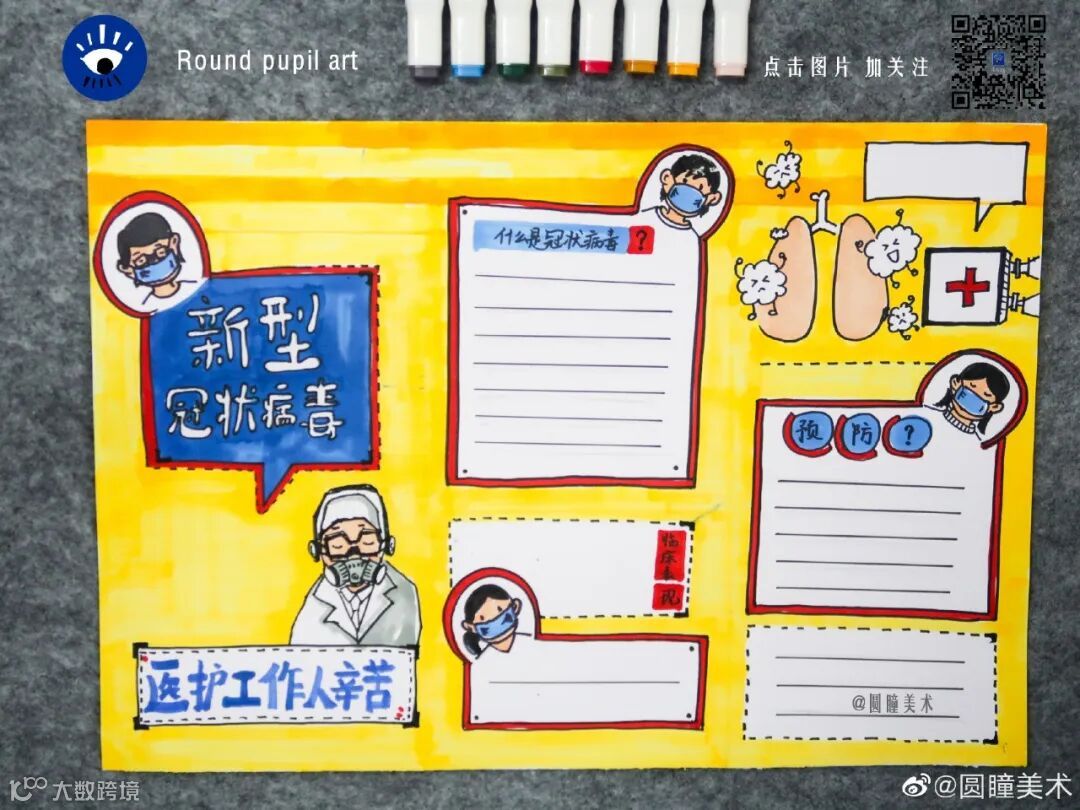 Round pupil art
点击图片 加关注
新型
冠状病毒
什么是冠状病毒?
预防?
临床表现
医护工作人辛苦
@圆瞳美术
大数跨境
@圆瞳美术